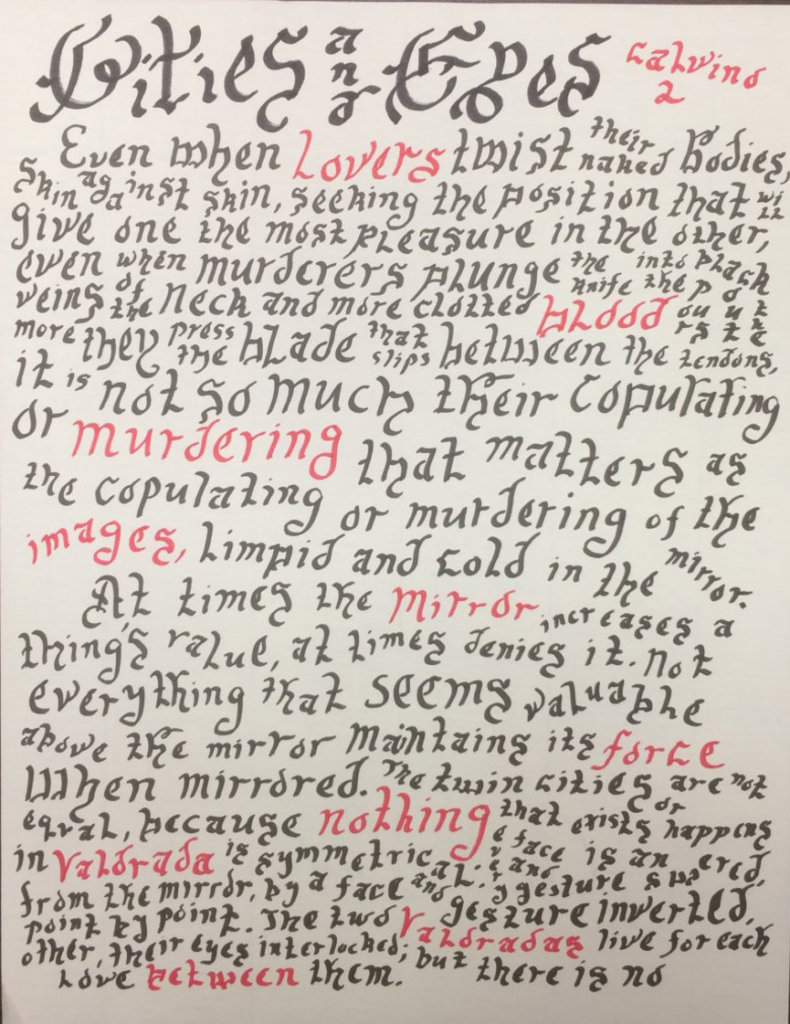 Cities and Eyes Calvino 2
Even when Lovers twist their naked Bodies,
skin against skin, seeking the position that will
give one the most pleasure in the other,
even when murderers plunge the knife into the black
veins of the neck and more clotted blood pours out the
more they press the blade that slips between the tendons,
it is not so much their copulating
or murdering that matters as
the copulating or murdering of the
images, limpid and cold in the mirror.
At times the mirror increases a
thing's value, at times denies it. Not
everything that seems valuable
above the mirror maintains its force
When mirrored. The twin cities are not
equal, because nothing that exists or happens
in Valdrada is symmetrical: every face and gesture is answered,
from the mirror, by a face and gesture inverted,
point by point. The two Valdradas live for each
other, their eyes interlocked; but there is no
love between them.